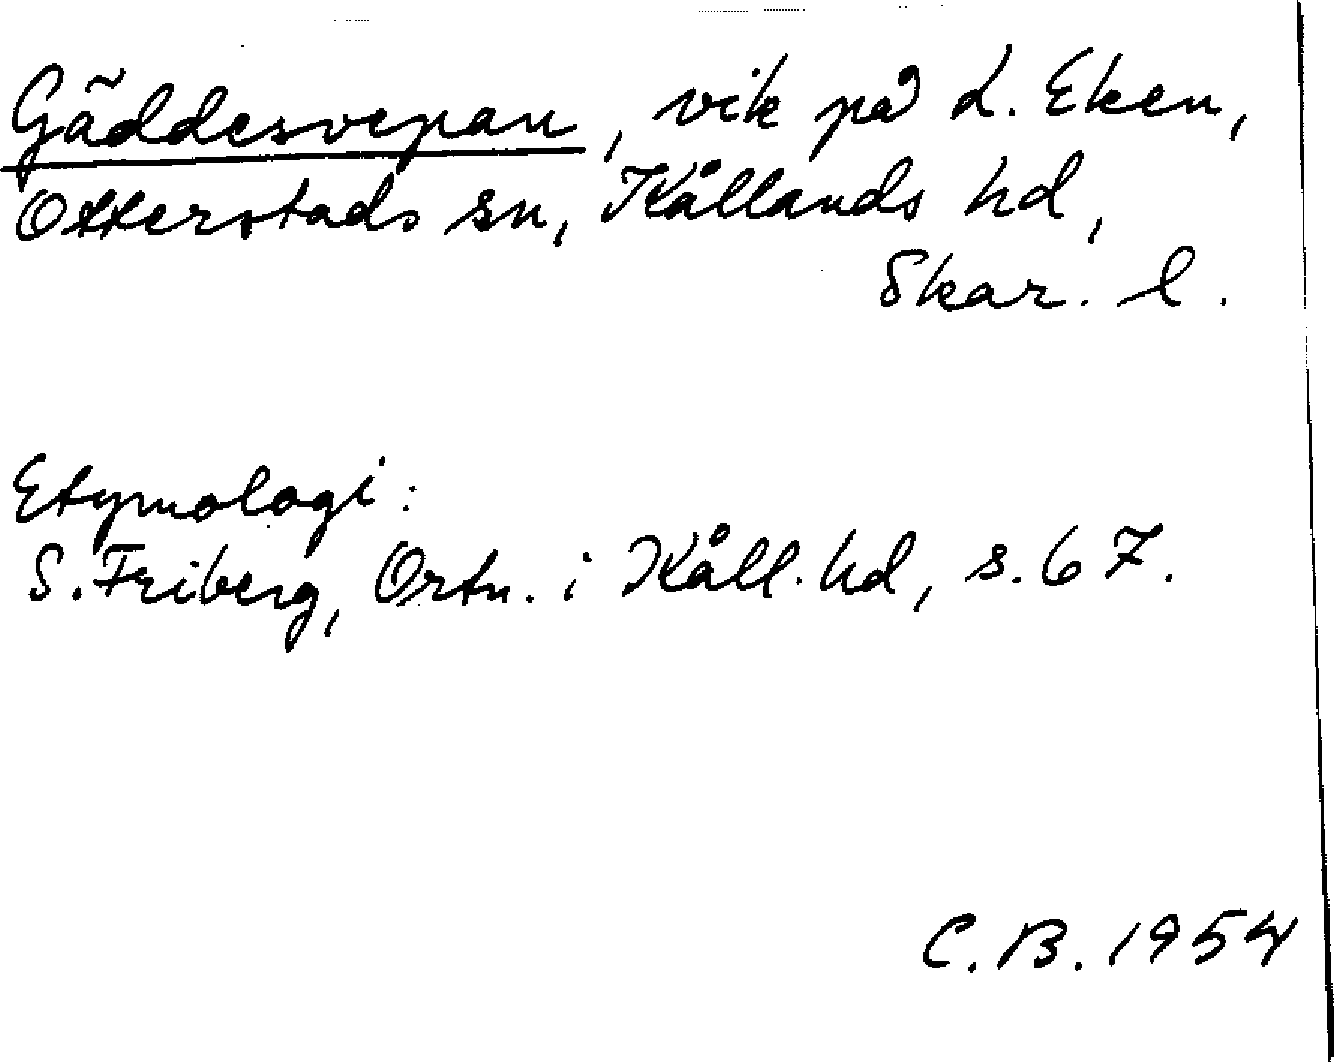 Gäddesvepan, vik på L. Eken,
Otterstads sn, Kållands hd,
Skar. l.
Etymologi:
S. Friberg, Ortn. i Kåll. hd, s. 67.
C. B. 1954